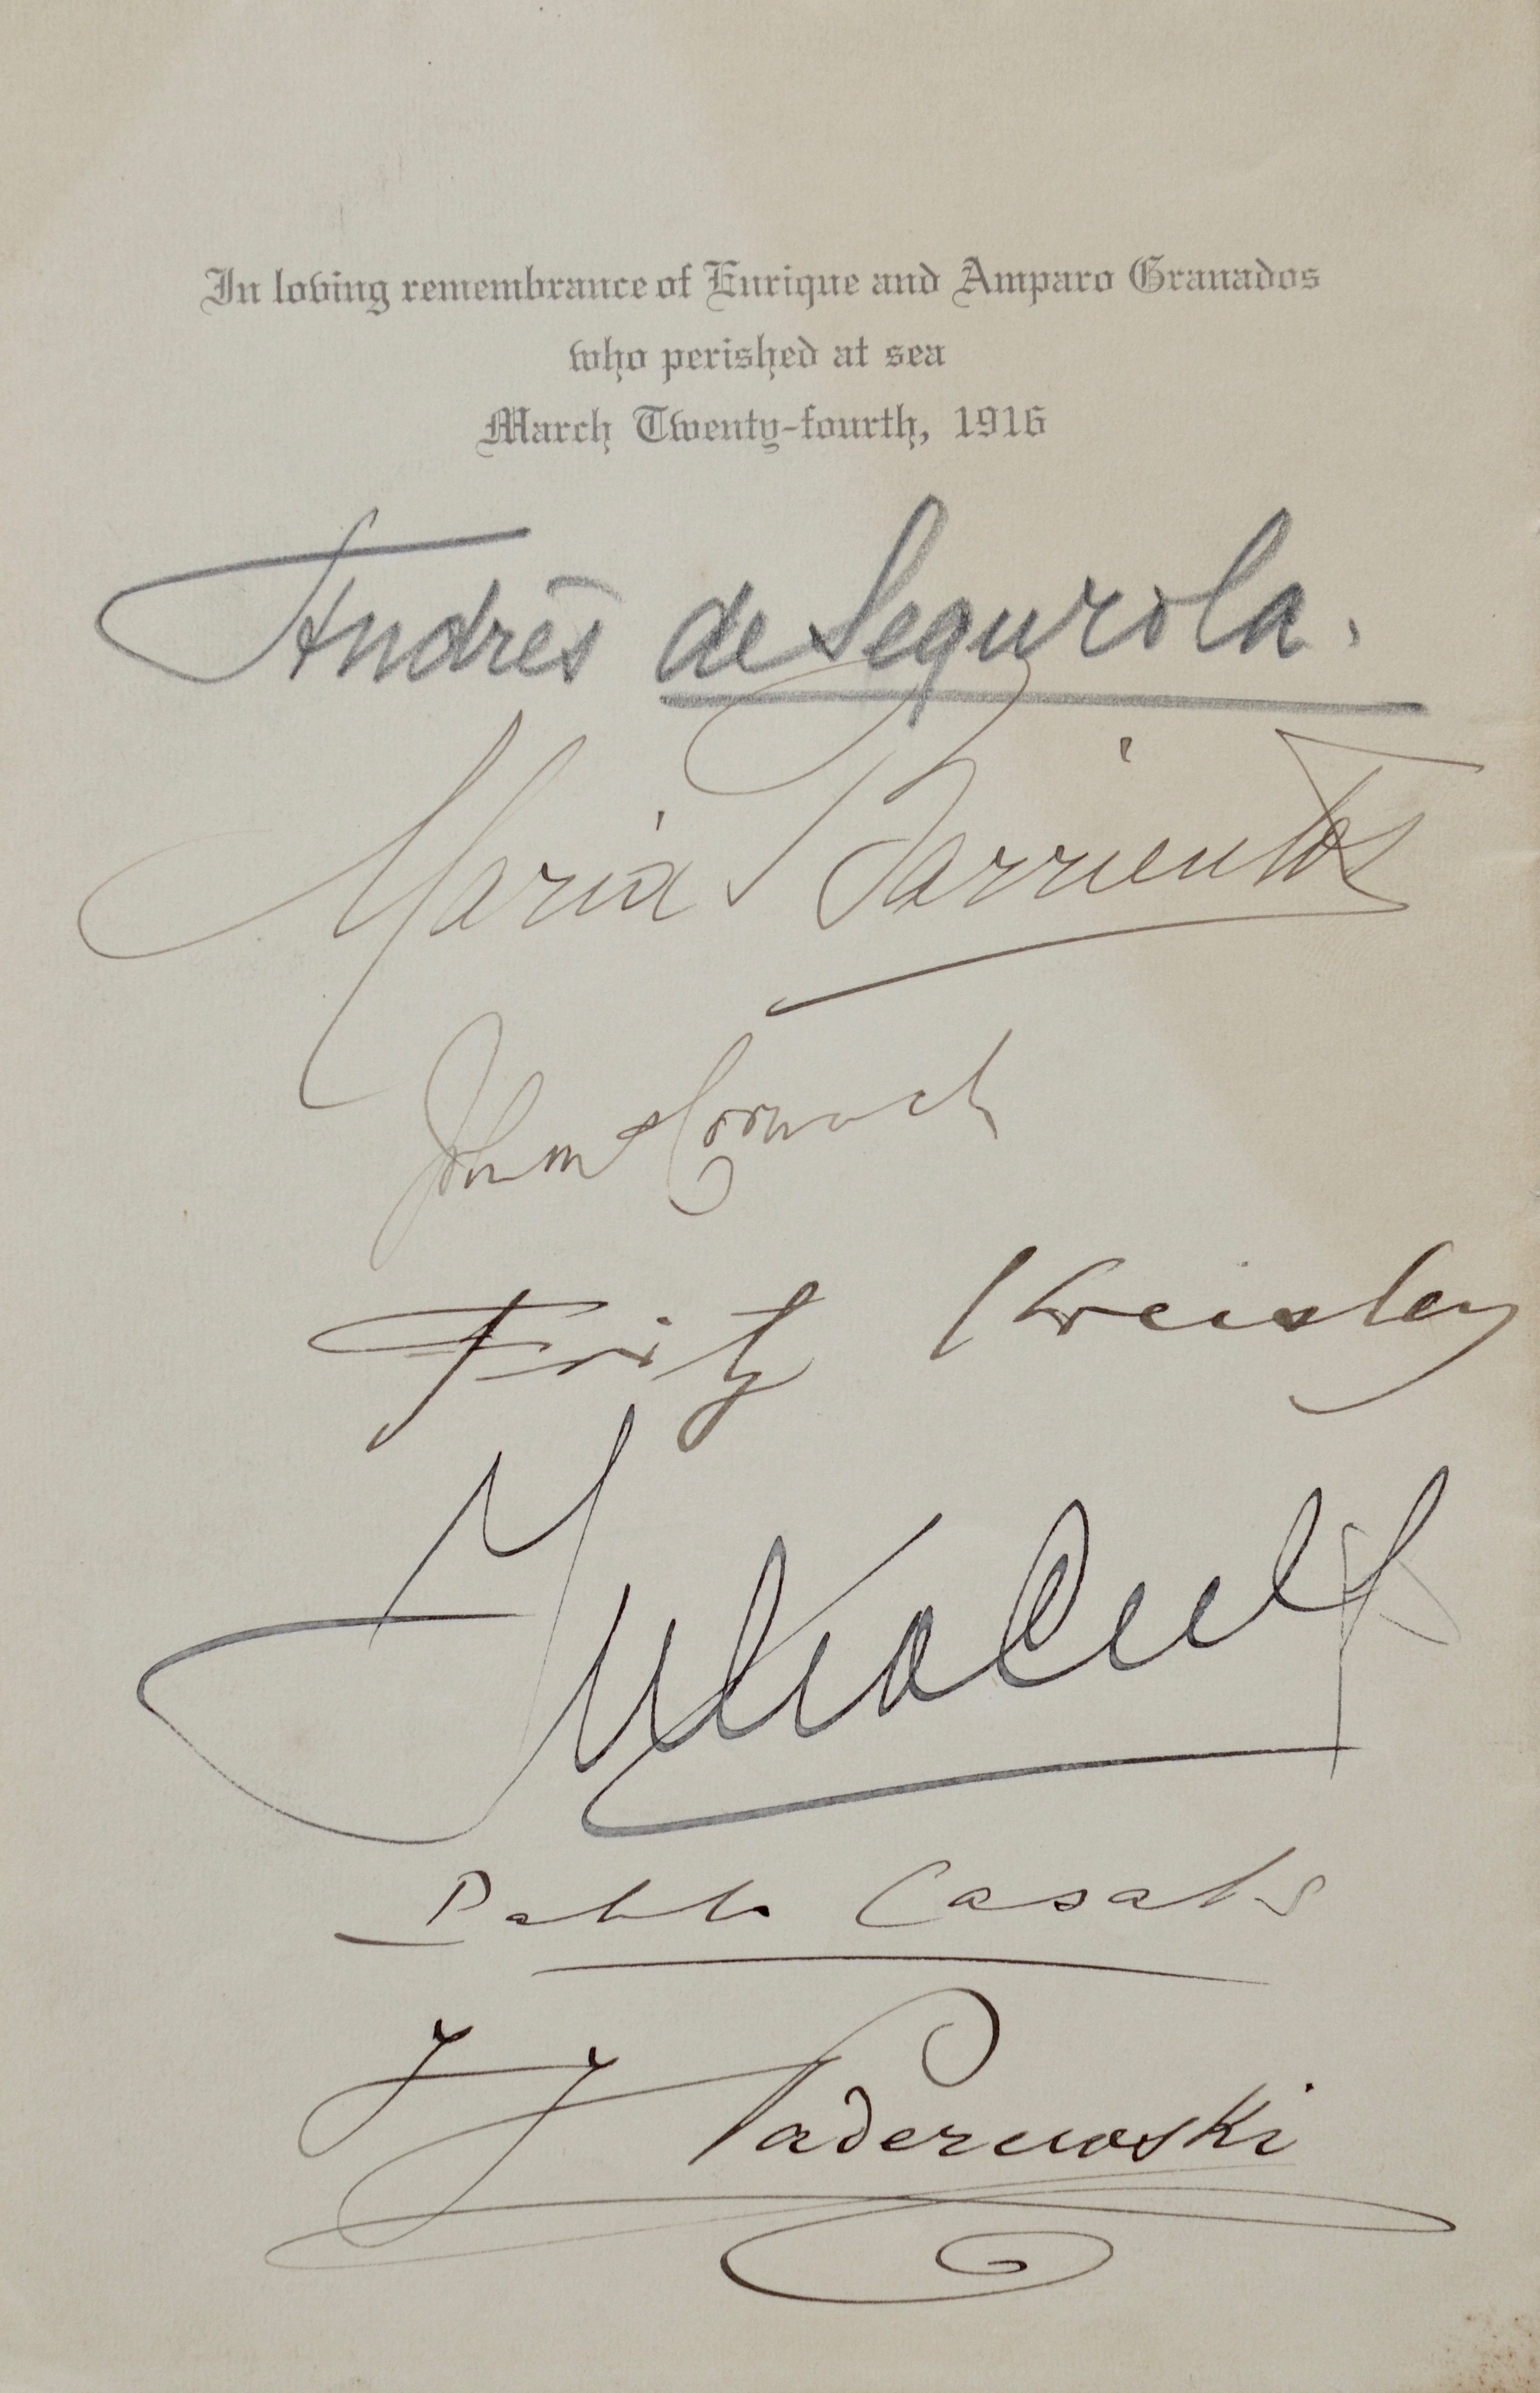 In loving remembrance of Enrique and Amparo Granados
who perished at sea
March Twenty-fourth, 1916
Andrés de Segurola.
Maria Barrientos
John McCormack
Fritz Kreisler
Julia Culp
Pablo Casals
I J Paderewski